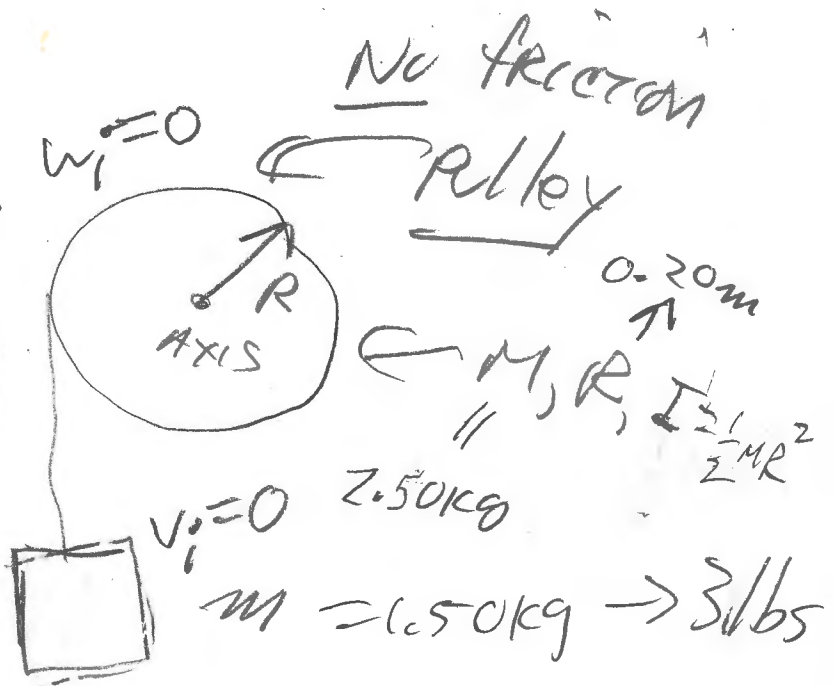 No friction
ωi=0
Pulley
0.20m
R
AXIS
M, R, I=½MR²
2.50kg
vi=0
m =1.50kg → 3lbs